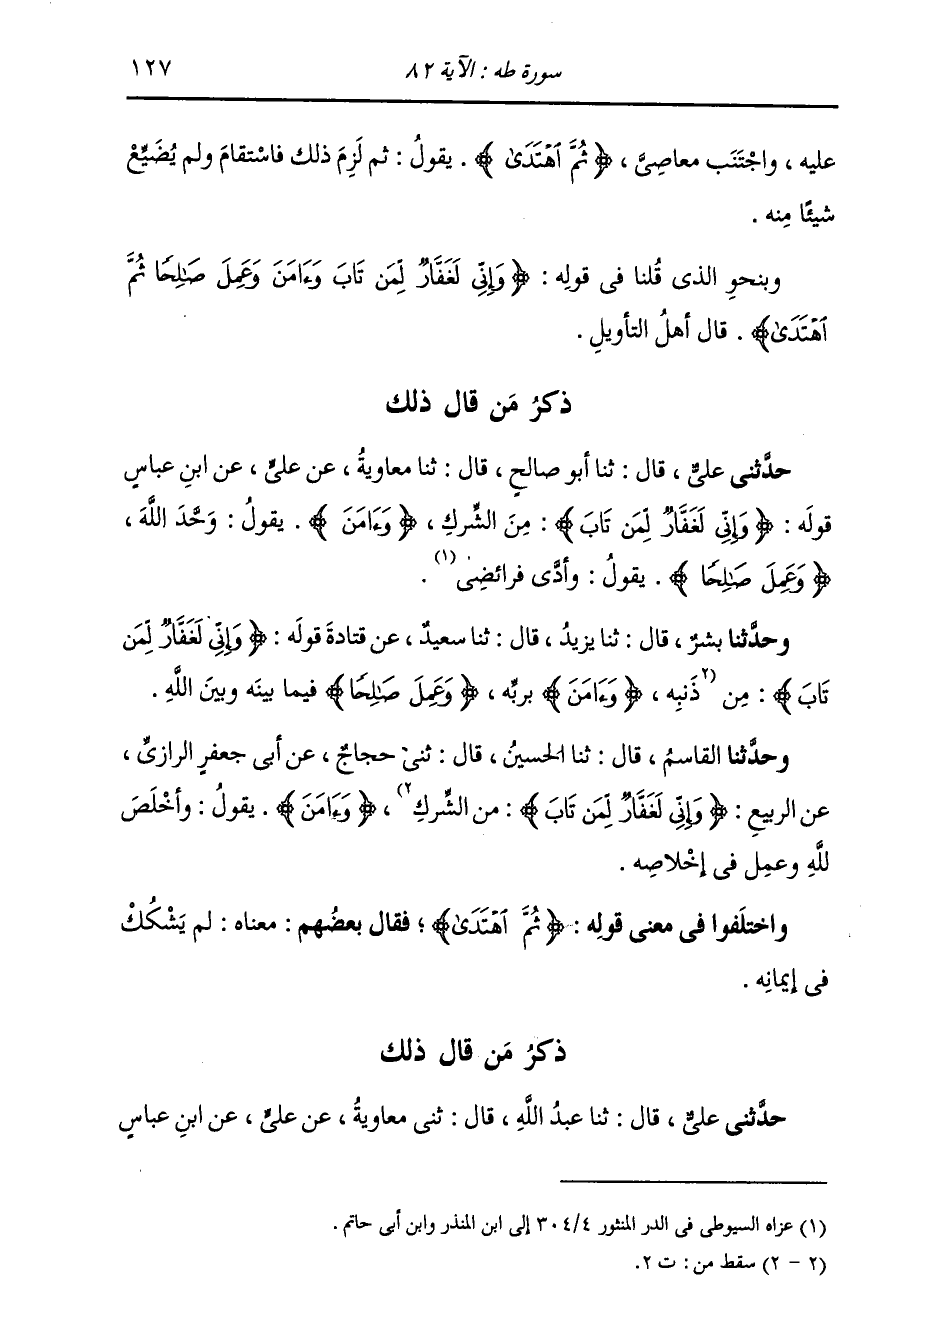 سورة طه : الآية ٨٢
١٢٧
عليه ، واجْتَنَب معاصِىَّ ، ﴿ ثُمَّ ٱهْتَدَىٰ ﴾ . يقولُ : ثم لَزِمَ ذلك فاسْتقامَ ولم يُضَيِّعْ
شيئًا مِنه .
وبنحوِ الذى قُلنا فى قولِه : ﴿ وَإِنِّي لَغَفَّارٌ لِّمَن تَابَ وَءَامَنَ وَعَمِلَ صَـٰلِحًا ثُمَّ
ٱهْتَدَىٰ﴾ . قال أهلُ التأويلِ .
ذكرُ مَن قال ذلك
حدَّثنى علىٌّ ، قال : ثنا أبو صالحٍ ، قال : ثنا معاويةُ ، عن علىٍّ ، عن ابنِ عباسٍ
قولَه : ﴿ وَإِنِّي لَغَفَّارٌ لِّمَن تَابَ ﴾ : مِنَ الشِّركِ ، ﴿ وَءَامَنَ ﴾ . يقولُ : وَحَّدَ اللَّهَ ،
﴿ وَعَمِلَ صَـٰلِحًا ﴾ . يقولُ : وأدَّى فرائضِى(١) .
وحدَّثنا بشرٌ ، قال : ثنا يزيدُ ، قال : ثنا سعيدٌ ، عن قتادةَ قولَه : ﴿ وَإِنِّي لَغَفَّارٌ لِّمَن
تَابَ ﴾ : مِن (٢ذَنبِه ، ﴿ وَءَامَنَ ﴾ بربِّه ، ﴿ وَعَمِلَ صَـٰلِحًا ﴾ فيما بينَه وبينَ اللَّهِ .
وحدَّثنا القاسمُ ، قال : ثنا الحسينُ ، قال : ثنىْ حجاجٌ ، عن أبى جعفرٍ الرازىِّ ،
عن الربيعِ : ﴿ وَإِنِّي لَغَفَّارٌ لِّمَن تَابَ ﴾ : من الشِّركِ٢) ، ﴿ وَءَامَنَ ﴾ . يقولُ : وأخْلَصَ
للَّهِ وعمِل فى إخْلاصِه .
واختلَفوا فى معنى قولِه : ﴿ ثُمَّ ٱهْتَدَىٰ﴾ ؛ فقال بعضُهم : معناه : لم يَشْكُكْ
فى إيمانِه .
ذكرُ مَن قال ذلك
حدَّثنى علىٌّ ، قال : ثنا عبدُ اللَّهِ ، قال : ثنى معاويةُ ، عن علىٍّ ، عن ابنِ عباسٍ
(١) عزاه السيوطى فى الدر المنثور ٣٠٤/٤ إلى ابن المنذر وابن أبى حاتم .
(٢ - ٢) سقط من : ت ٢.